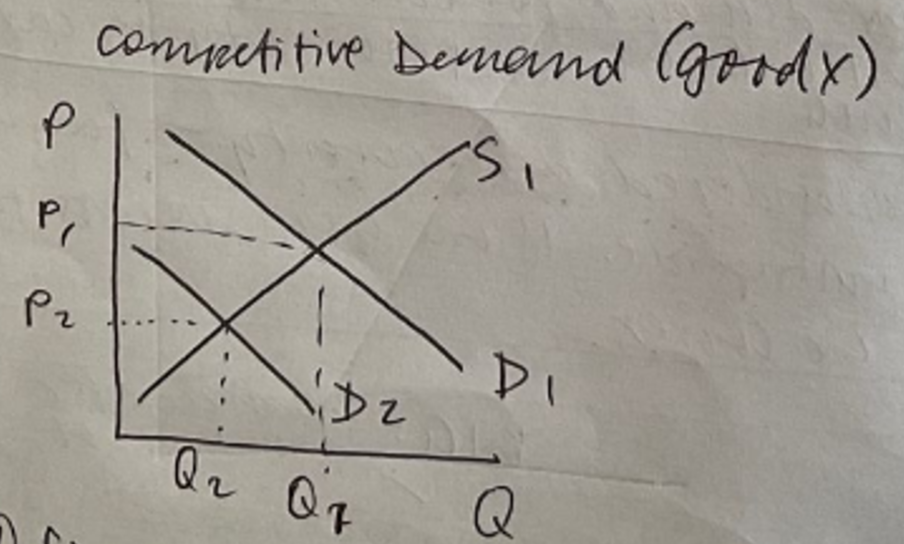 Competitive Demand (good x)
P
S1
P1
P2
D1
D2
Q2
Q1
Q